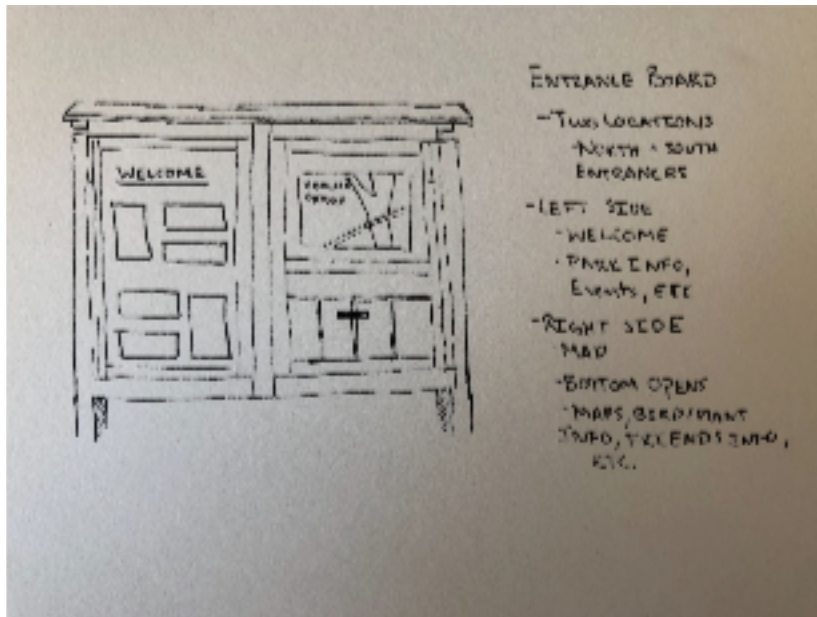 WELCOME
ENTRANCE BOARD
- TWO LOCATIONS
- NORTH + SOUTH
ENTRANCES
- LEFT SIDE
- WELCOME
- PARK INFO,
Events, ETC
- RIGHT SIDE
- MAP
- BOTTOM OPENS
- MAPS, BIRD/PLANT
INFO, FRIENDS INFO,
ETC.